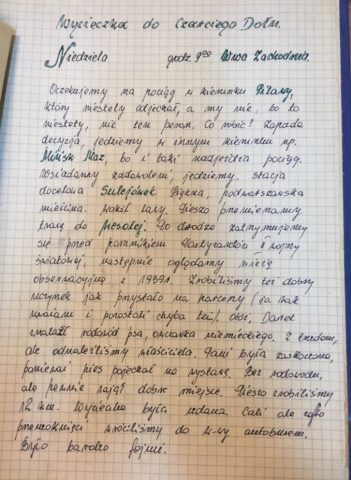 Wycieczka do Czarciego Dołu.
Niedziela godz. 9⁰⁰ W-wa Zachodnia.
Oczekujemy na pociąg w kierunku
który niestety odjechał, a my nie, bo to
niestety, nie ten peron. Co robić? Zapada
decyzja, jedziemy w innym kierunku np.
Mińsk Maz, bo i taki nadjeżdża pociąg.
Wsiadamy zadowoleni, jedziemy. Stacja
docelowa Sulejówek. Piękna, podwarszawska
mieścina. Wokół lasy. Pieszo przemierzamy
trasę do Wesołej. Po drodze zatrzymujemy
się przed pomnikiem Partyzantów II wojny
światowej, następnie oglądamy wieżę
obserwacyjną z 1939r. Zrobiliśmy też dobry
uczynek jak przystało na harcerzy (za
i porostali chyba też). Otóż, Danek
znalazł rodowód psa, owczarka niemieckiego. Z trudem,
ale odnaleźliśmy właściciela. Pani była zaskoczona,
ponieważ pies pojechał na wystawę. Bez rodowodu,
ale pewnie zajął dobre miejsce. Pieszo zrobiliśmy
12 km. Wycieczka była udana. Cali ale
przemoknięci wróciliśmy do W-wy autobusem.
Było bardzo fajnie.